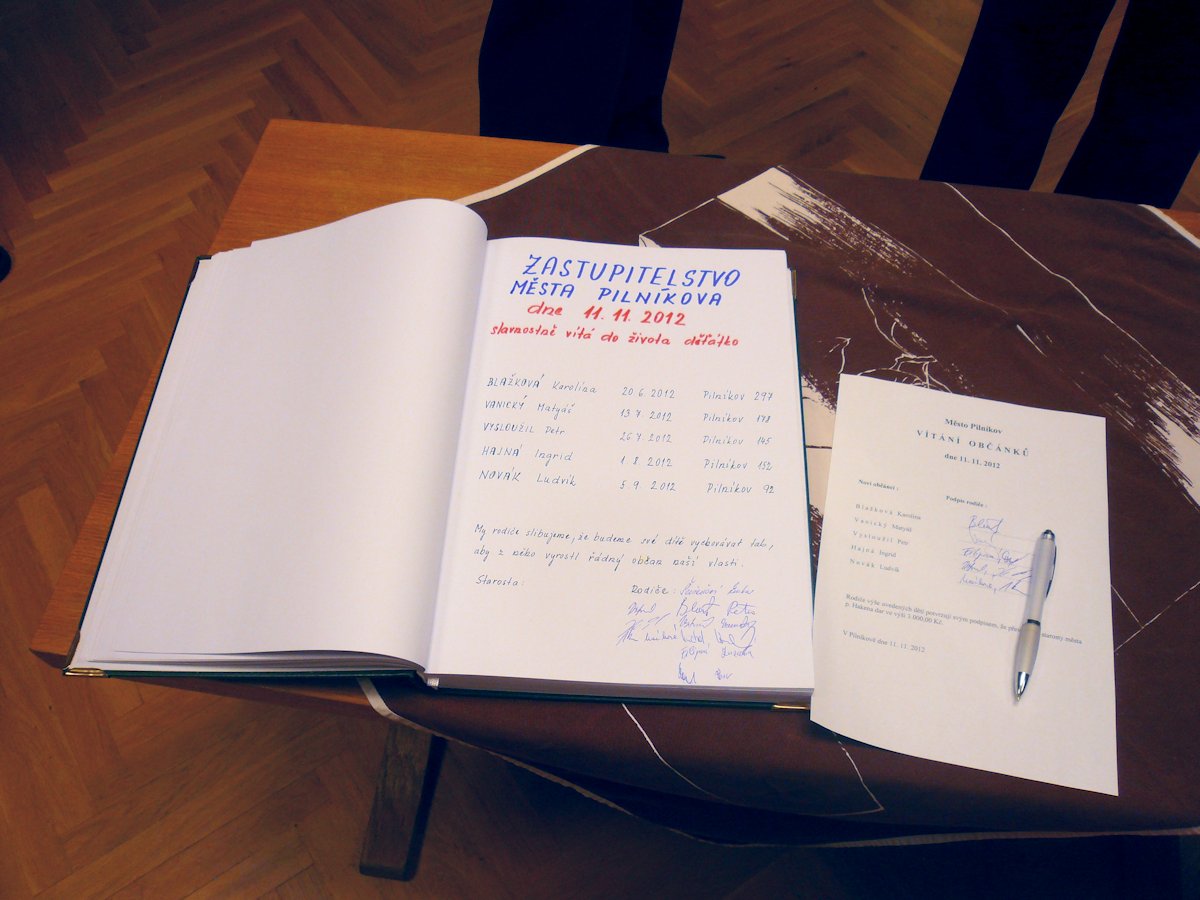 ZASTUPITELSTVO
MĚSTA PILNÍKOVA
dne 11.11.2012
slavnostně vítá do života děťátko
BLAŽKOVÁ Karolína 20.6.2012 Pilníkov 297
VANICKÝ Matyáš 13.7.2012 Pilníkov 178
VYSLOUŽIL Petr 26.7.2012 Pilníkov 145
HAJNÁ Ingrid 1.8.2012 Pilníkov 152
NOVÁK Ludvík 5.9.2012 Pilníkov 92
My rodiče slibujeme, že budeme své dítě vychovávat tak,
aby z něho vyrostl řádný občan naší vlasti.
Starosta: Rodiče:
Město Pilníkov
VÍTÁNÍ OBČÁNKŮ
dne 11.11.2012
Noví občánci: Podpis rodiče:
Blažková Karolína
Vanický Matyáš
Vysloužil Petr
Hajná Ingrid
Novák Ludvík
Rodiče výše uvedených dětí potvrzují svým podpisem, že starosty města
p. Hakena dar ve výši 1.000,00 Kč.
V Pilníkově dne 11.11.2012